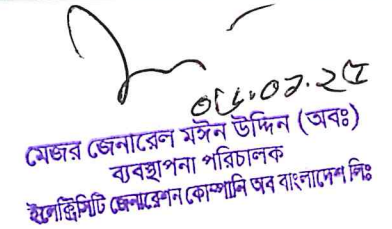 ০৫.০১.২৫
মেজর জেনারেল মঈন উদ্দিন (অবঃ)
ব্যবস্থাপনা পরিচালক
ইলেক্ট্রিসিটি জেনারেশন কোম্পানি অব বাংলাদেশ লিঃ